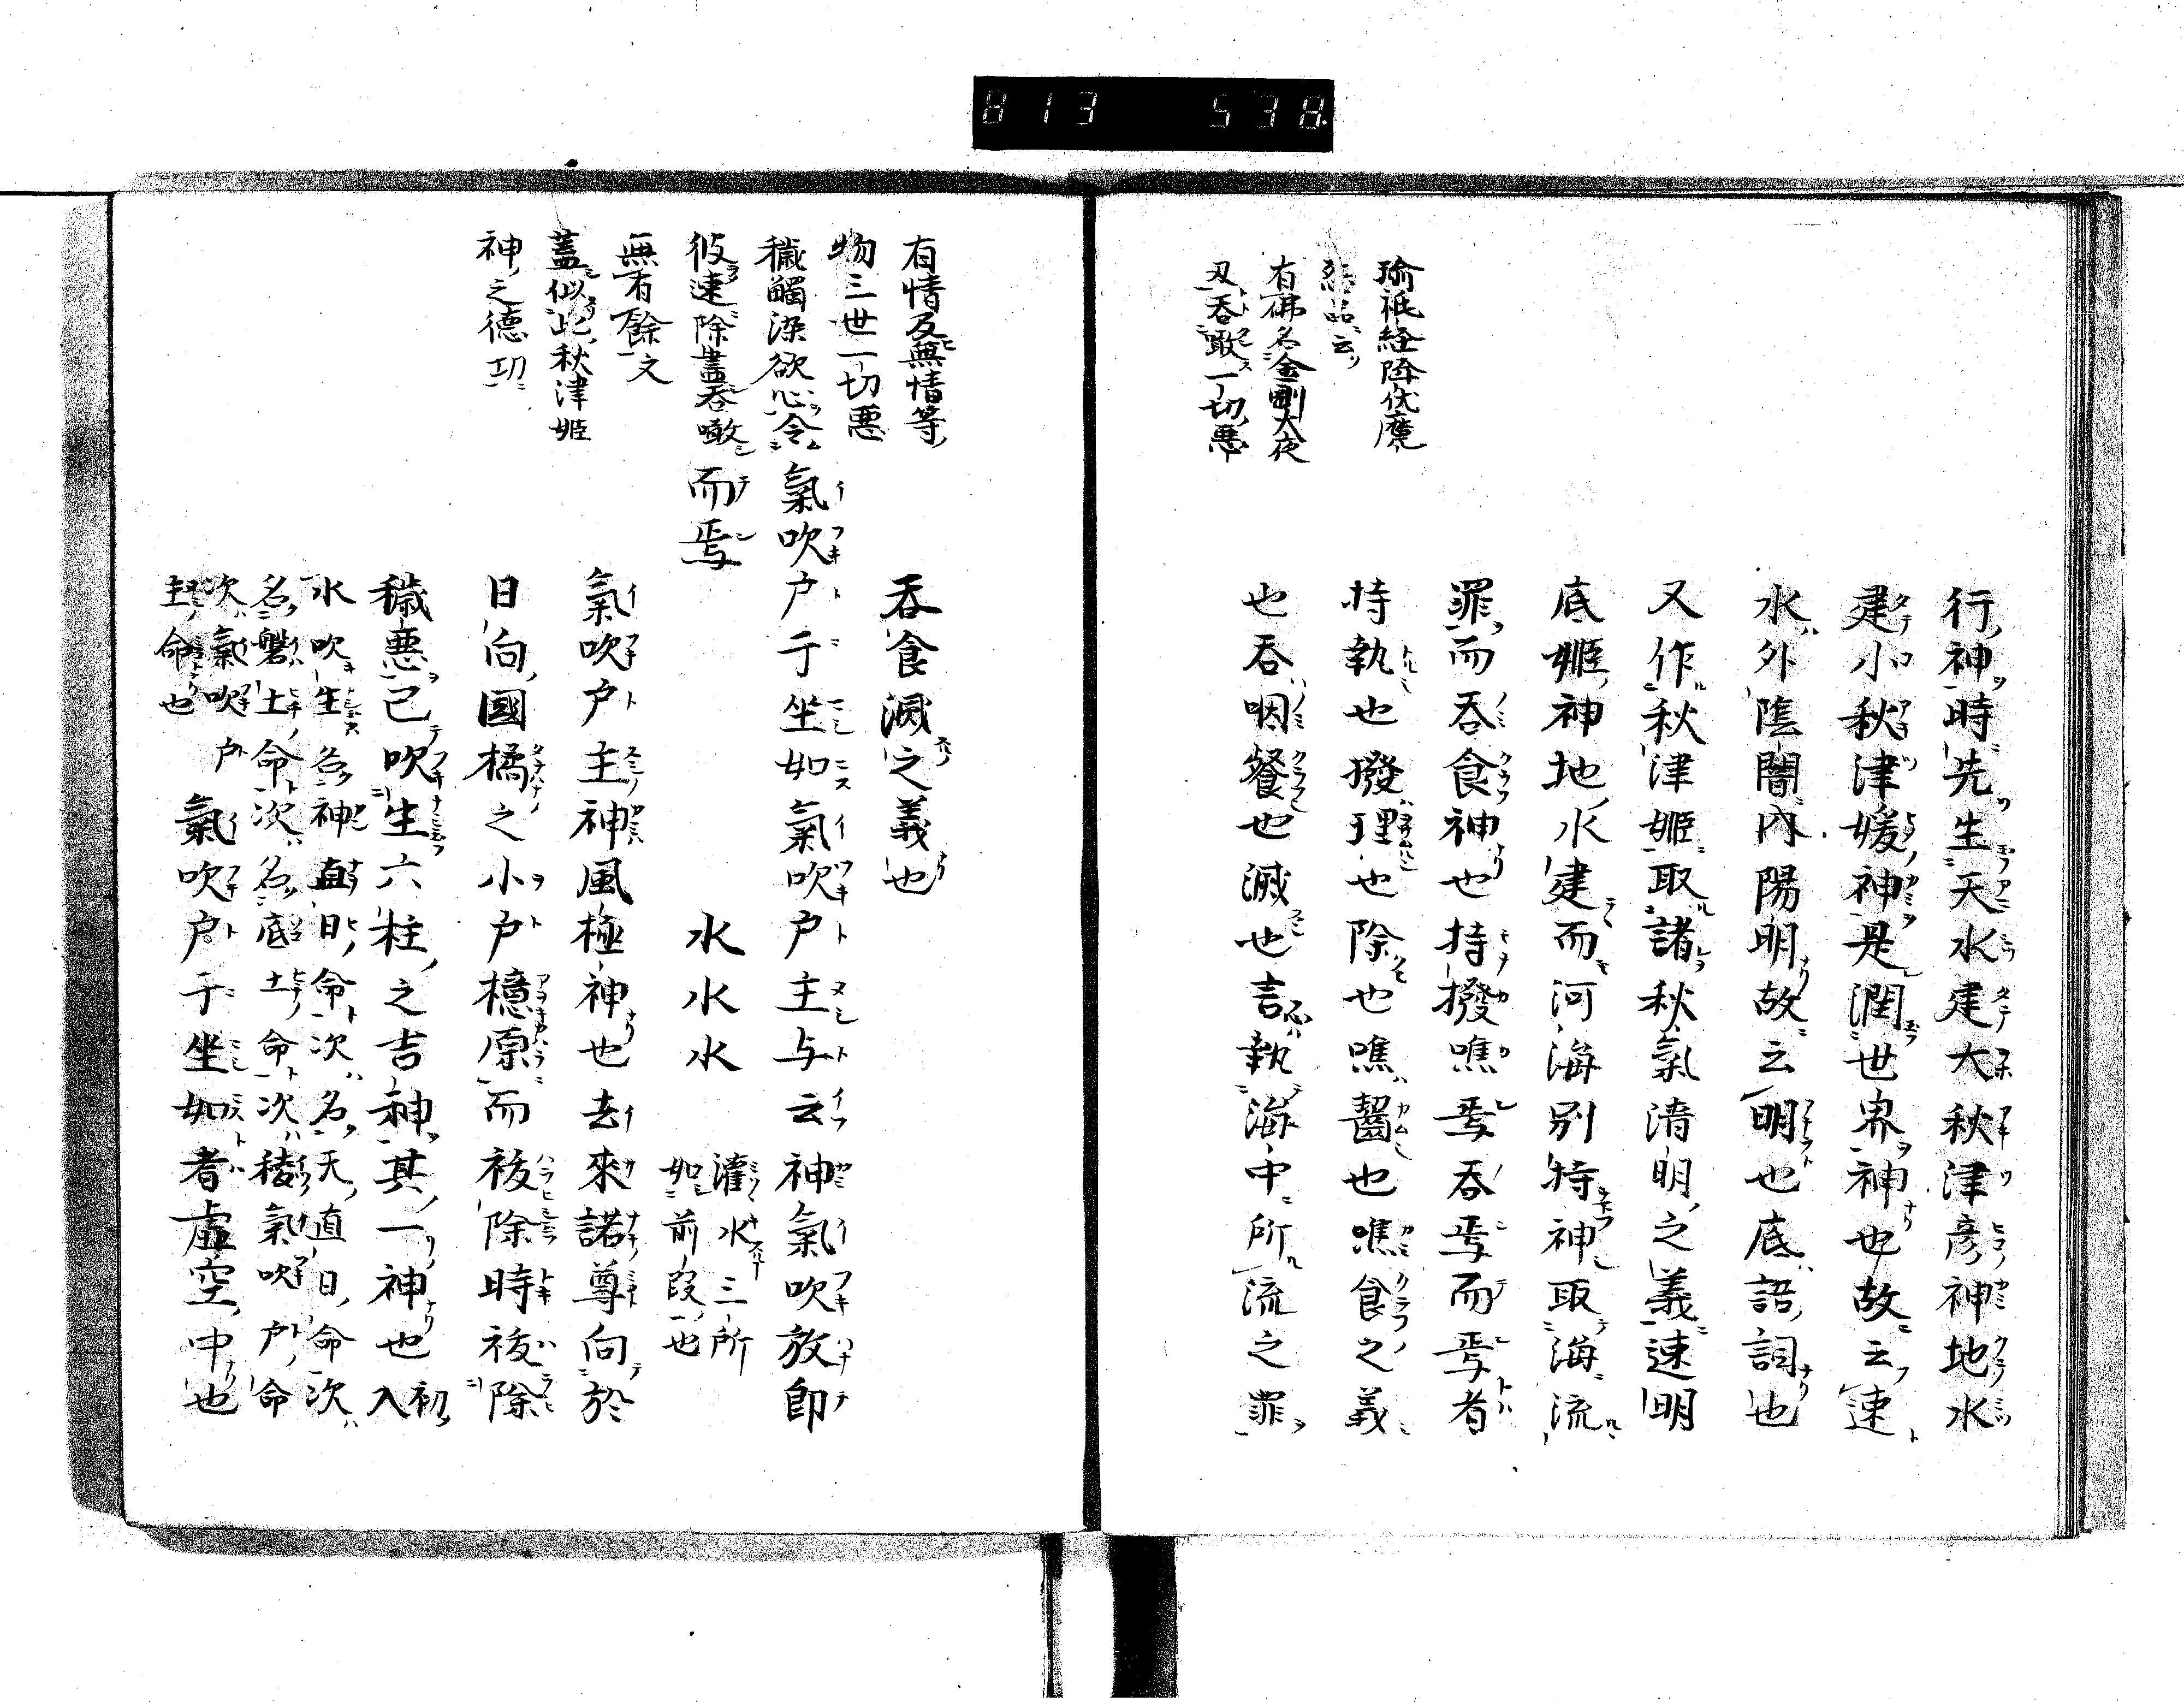 813 538
瑜祇経降伏魔
品云
有佛名金剛大夜
叉吞噉一切悪
行神時先生天水建大秋津彦神地水
建小秋津媛神是潤世界神也故云速
水外陰闇内陽明故云明也底語詞也
又作秋津姫取諸秋氣清明之義速明
底姫神地水建而河海別特神取海流
罪而吞食神也持撥噍焉吞焉而焉者
持執也撥理也除也噍齧也噍食之義
也吞咽餐也滅也言執海中所流之罪
有情及無情等
物三世一切悪
穢觸染欲心令
彼速除盡吞噉
無有餘文
蓋似此秋津姫
神之德功
吞食滅之義也
氣吹戸于坐如氣吹戸主与云神氣吹放卽
而焉 水水水 灌水三所
如前段也
氣吹戸主神風極神也去來諾尊向於
日向國橘之小戸檍原而祓除時祓除
穢悪已吹生六柱之吉神其一神也初入
水吹生名神直日命次名天直日命次
名磐土命次名底土命次稜氣吹戸命
次氣吹戸
主命也 氣吹戸于坐如者虚空中也